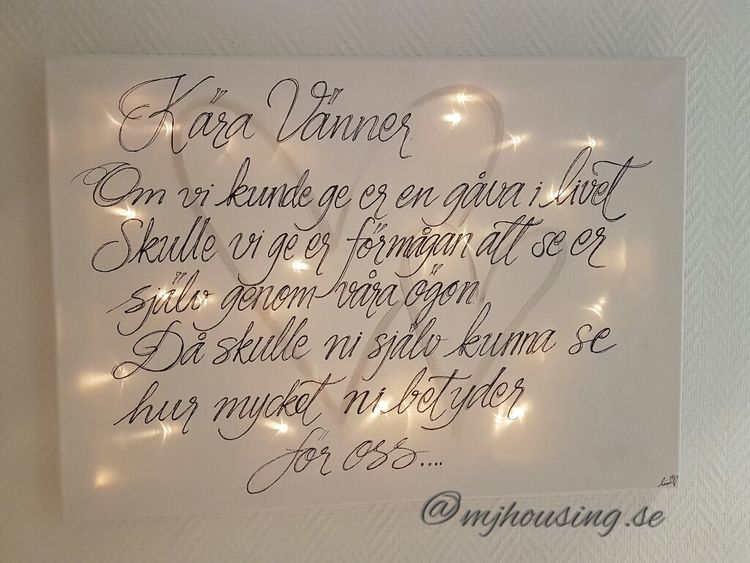 Kära Vänner
Om vi kunde ge er en gåva i livet
Skulle vi ge er förmågan att se er
själv genom våra ögon
Då skulle ni själv kunna se
hur mycket ni betyder
för oss....
@mjhousing.se